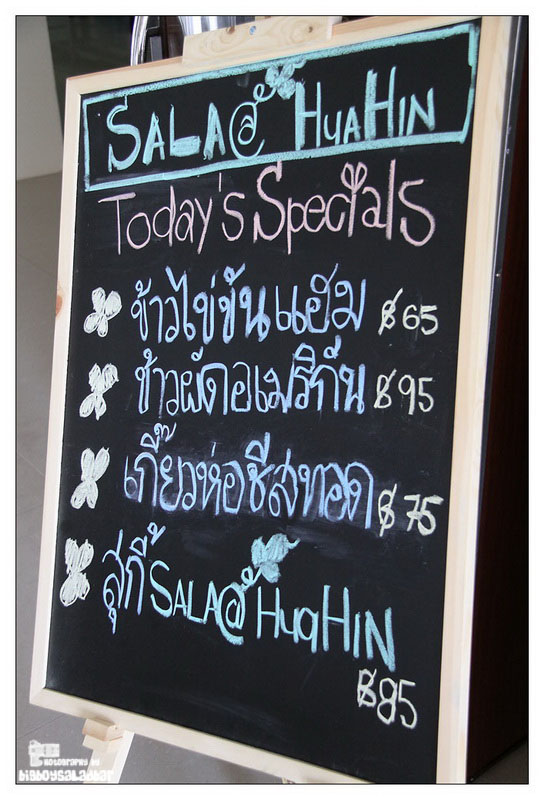 SALA@ HUAHIN
Today's Specials
ข้าวไข่ข้นแฮม ฿65
ข้าวผัดอเมริกัน ฿95
เกี๊ยวห่อชีสทอด ฿75
สุกี้ SALA@ HUaHIN
฿85
PHOTOGRAPHY BY
BIGBOYSALADBAR